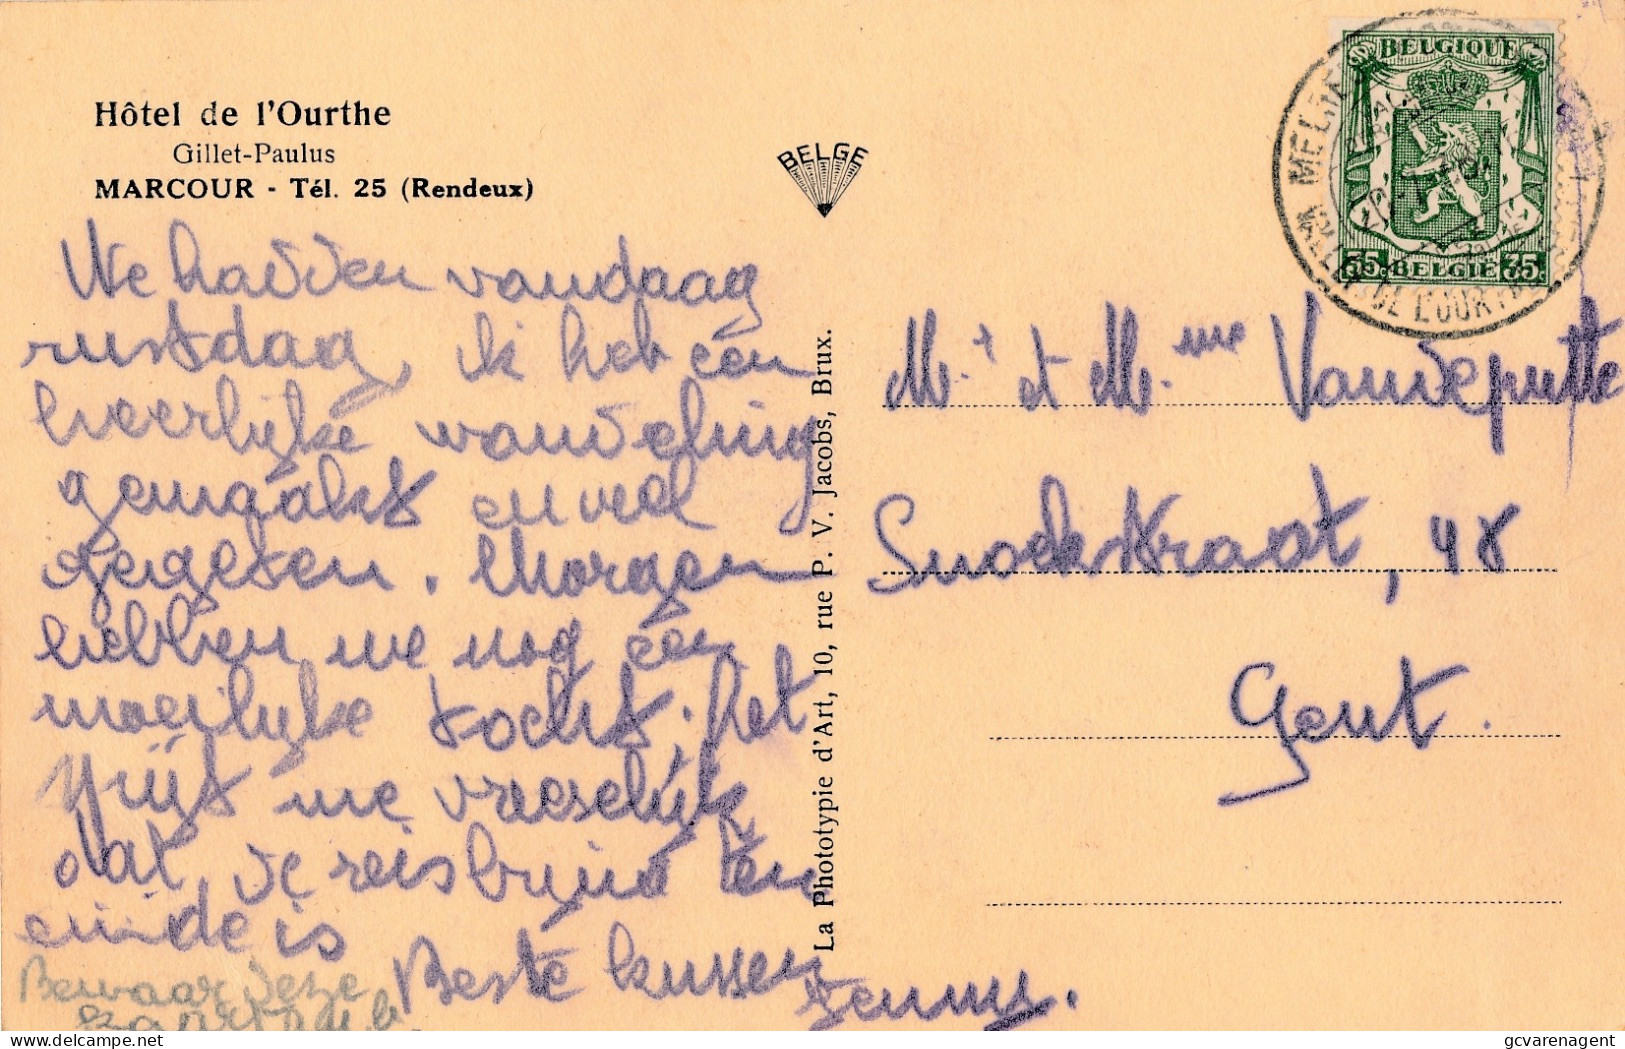 Hôtel de l'Ourthe
Gillet-Paulus
MARCOUR - Tél. 25 (Rendeux)
BELGE
BELGIQUE
35c BELGIE 35c
DE L'OURTHE
We hadden vandaag
rustdag, ik heb een
heerlijke wandeling
gemaakt en veel
gegeten. Morgen
hebben we nog een
moeilijke tocht. Het
spijt me vreeselijk
dat de reis bijna ten
einde is
Beste kussen
Jenny.
Bewaar deze
La Phototypie d'Art, 10, rue P. V. Jacobs, Brux.
Mr. et Mme Vandeputte
Snoekstraat, 48
Gent.
delcampe.net
gcvarenagent